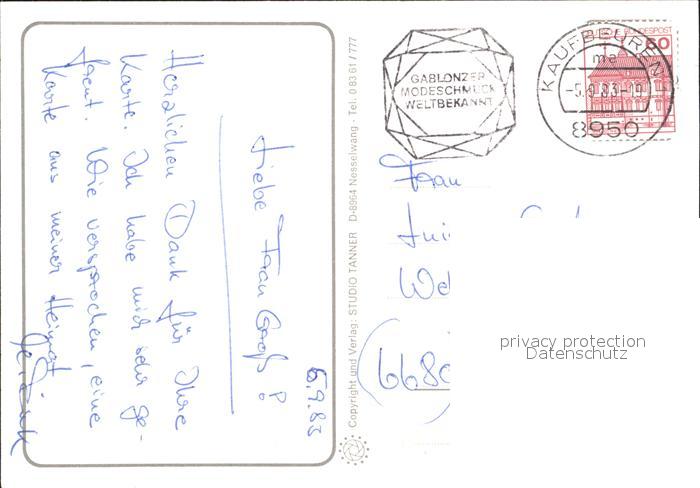 5.9.83
Liebe Frau Groß!
Herzlichen Dank für Ihre
Karte. Ich habe mich sehr ge-
freut. Wie versprochen, eine
Karte aus meiner Heimat
Copyright und Verlag: STUDIO TANNER D-8964 Nesselwang · Tel. 0 83 61 / 777
GABLONZER
MODESCHMUCK
WELTBEKANNT
KAUFBEUREN
ma
-5.9.83-19
8950
DEUTSCHE BUNDESPOST
60
Frau
We
(668
privacy protection
Datenschutz